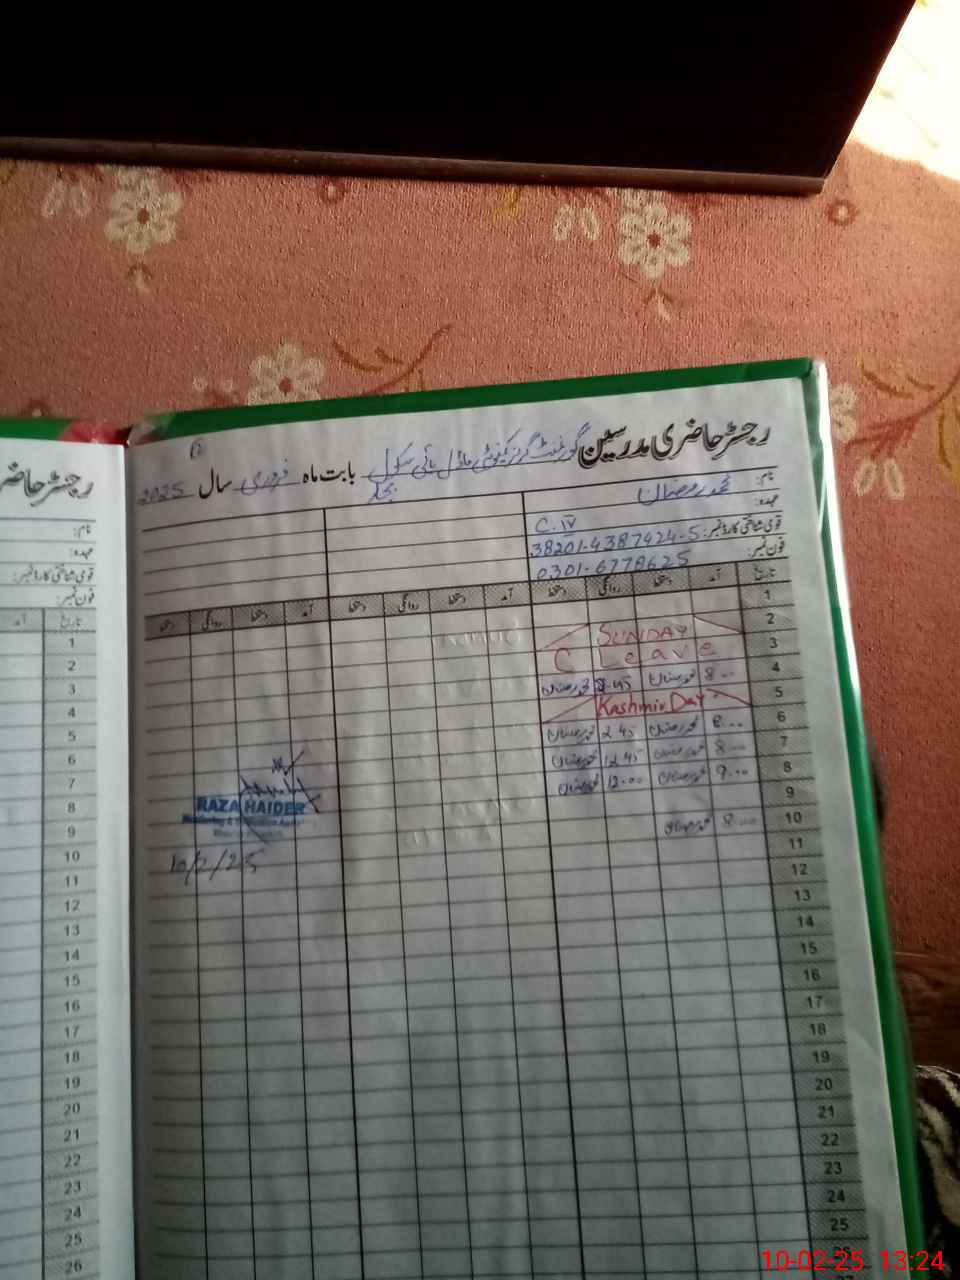 رجسٹر حاضری مدرسین گورنمنٹ گرلز کمیونٹی ماڈل ہائی سکول بابت ماہ فروری سال 2025
نام: محمد رمضان
عہدہ: C.IV
قومی شناختی کارڈ نمبر: 38201-4387424-5
فون نمبر: 0301-6778625
تاریخ آمد دستخط روانگی دستخط آمد دستخط روانگی دستخط آمد دستخط روانگی دستخط
1
2 SUNDAY
3 C Leave
4 8-00 محمد رمضان 2-45 محمد رمضان
5 Kashmir Day
6 8-00 محمد رمضان 2-45 محمد رمضان
7 8-00 محمد رمضان 12-45 محمد رمضان
8 9-00 محمد رمضان 12-00 محمد رمضان
9
10 8-00 محمد رمضان
11
12
13
14
15
16
17
18
19
20
21
22
23
24
25
RAZA HAIDER
10/2/25
رجسٹر حاضر
نام:
عہدہ:
قومی شناختی کارڈ نمبر:
فون نمبر:
تاریخ آمد
1
2
3
4
5
6
7
8
9
10
11
12
13
14
15
16
17
18
19
20
21
22
23
24
25
26
10-02-25 13:24